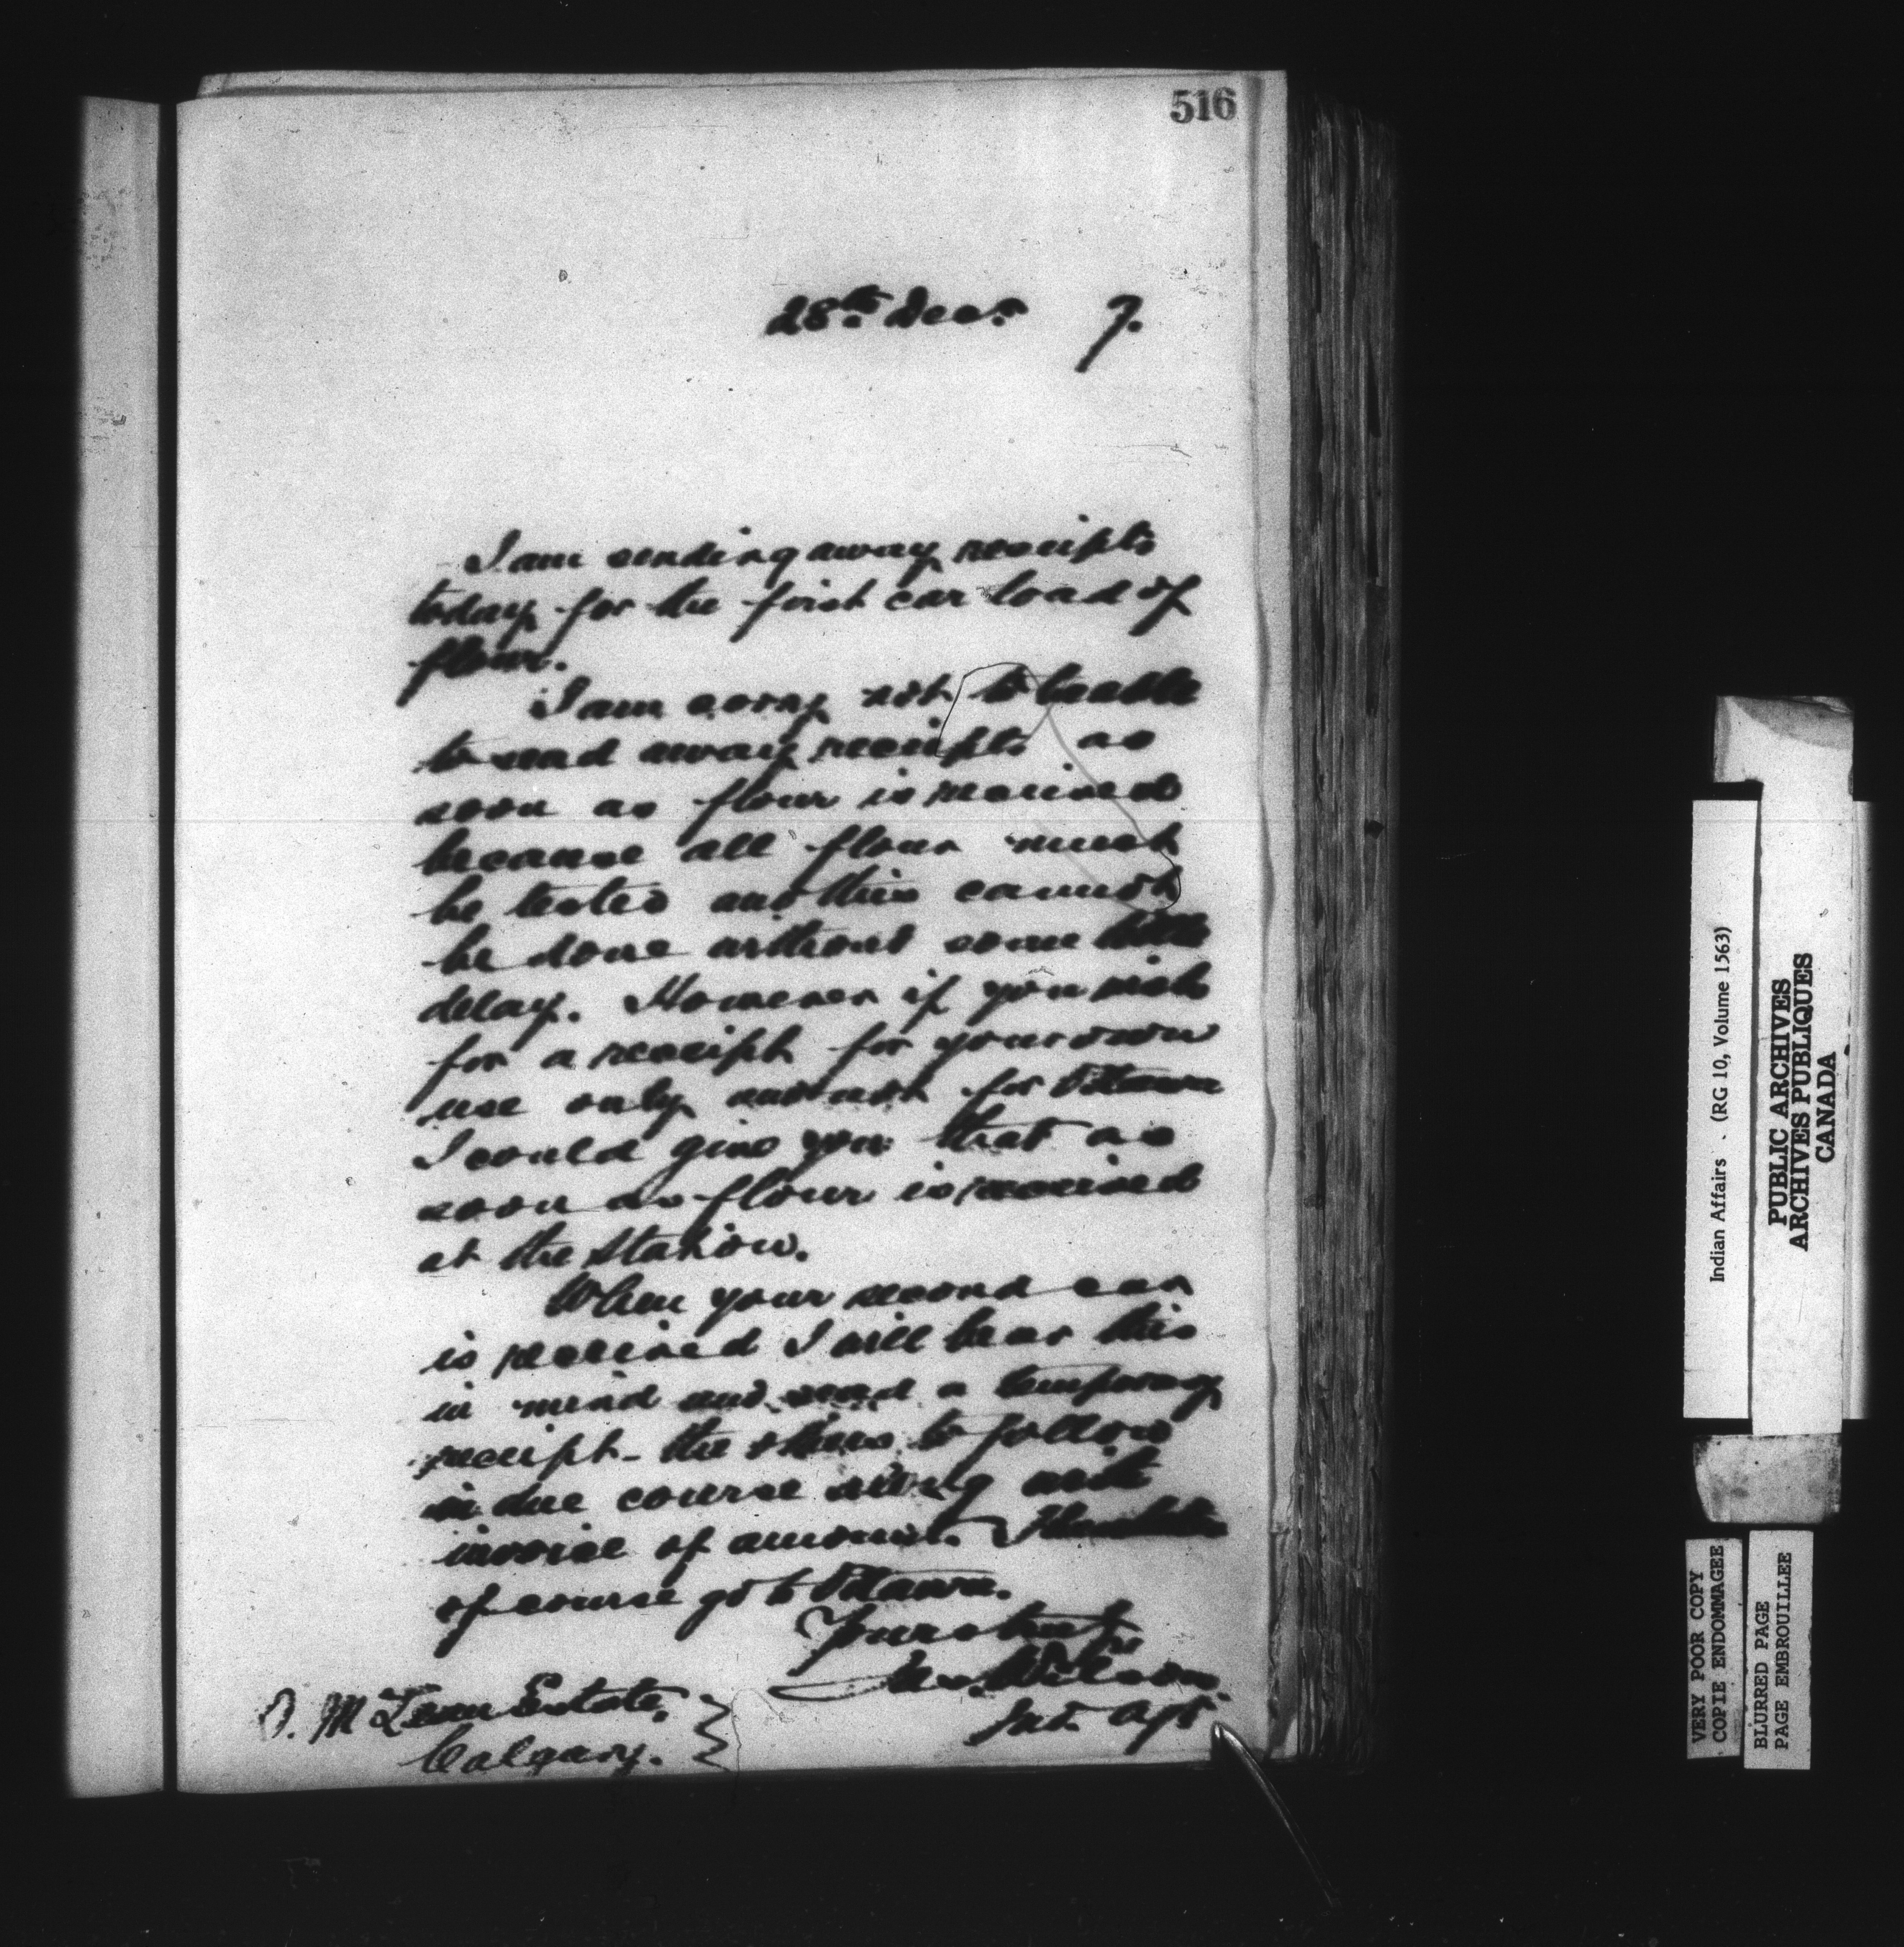 516
28th Decr 7.
I am sending away receipts
today for the first car load of
flour.
I am sorry not to be able
to send away receipts as
soon as flour is received
because all flour must
be tested and this cannot
be done without some little
delay. However if you wish
for a receipt for your own
use only and not for Ottawa
I could give you that as
soon as flour is received
at the station.
When your second car
is received I will bear this
in mind and send a temporary
receipt - the others to follow
in due course along with
invoice of amount.
of course go to Ottawa.
Yours truly
Jas. Wilson
Ind. Agt.
D. McLean Estate,
Calgary.
Indian Affairs . (RG 10, Volume 1563)
PUBLIC ARCHIVES
ARCHIVES PUBLIQUES
CANADA
VERY POOR COPY
COPIE ENDOMMAGEE
BLURRED PAGE
PAGE EMBROUILLEE